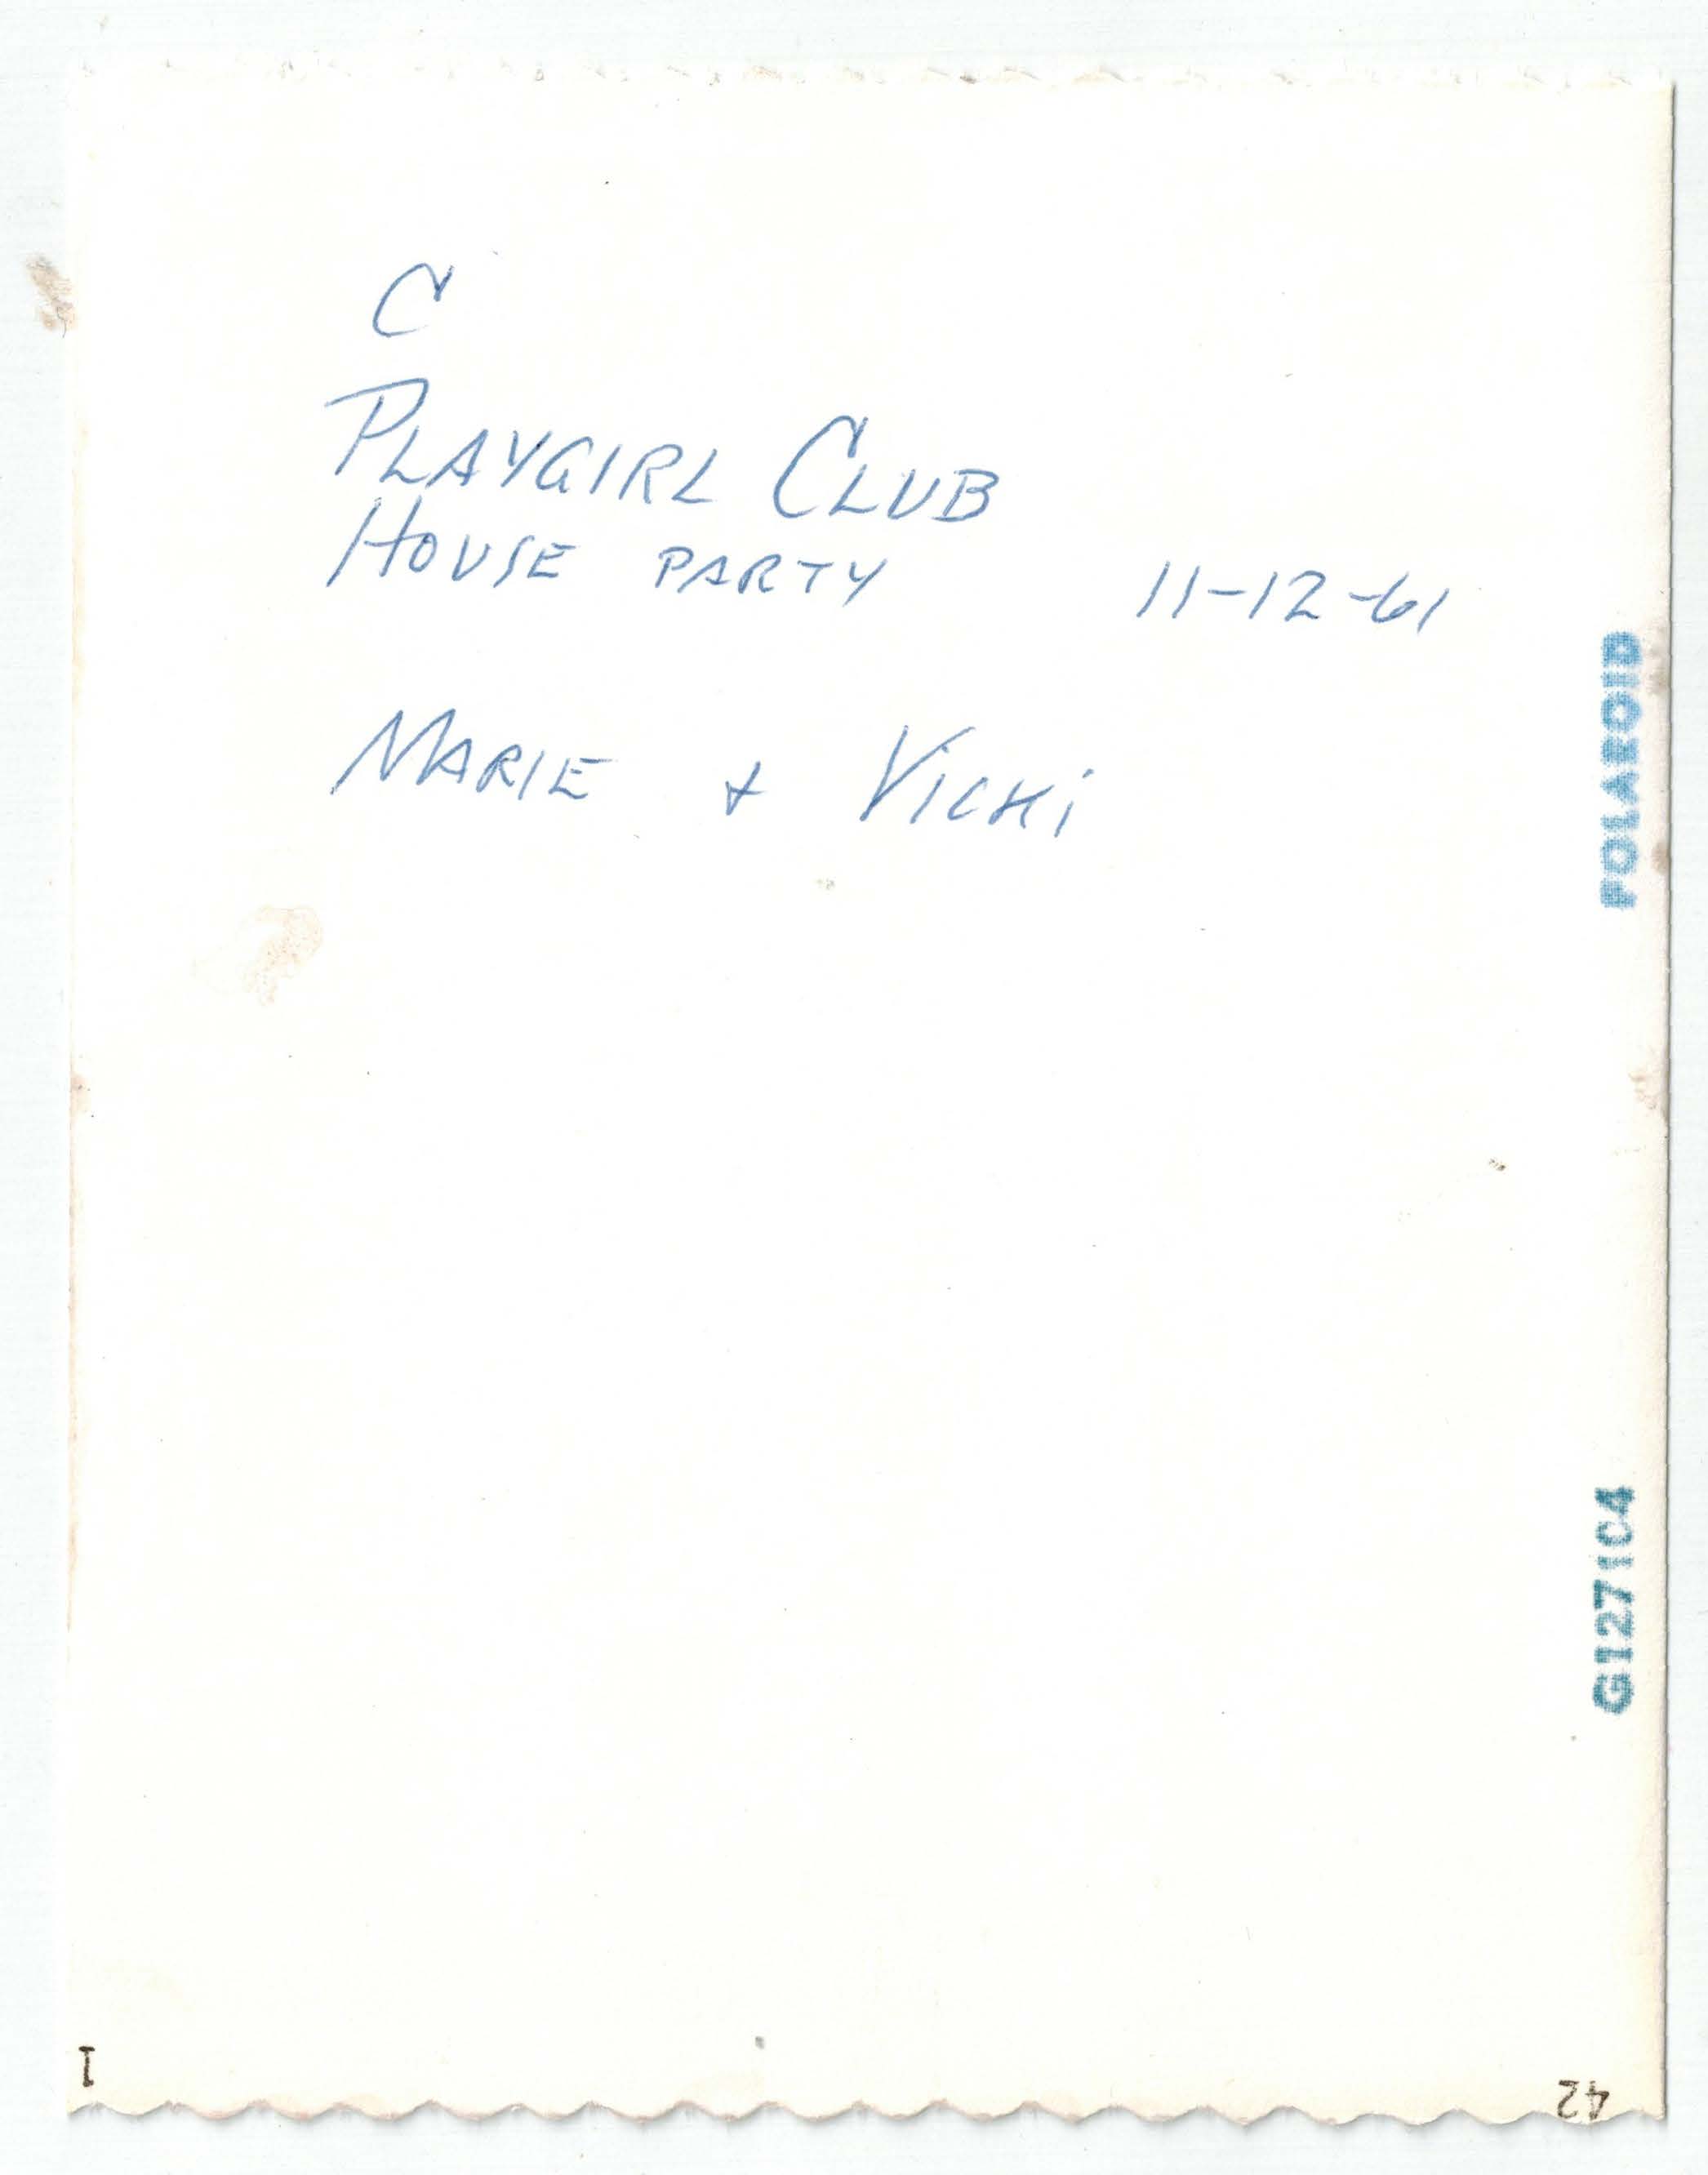 C
PLAYGIRL CLUB
HOUSE PARTY 11-12-61
MARIE + VICKi
POLAROID
G1271C4
1
42